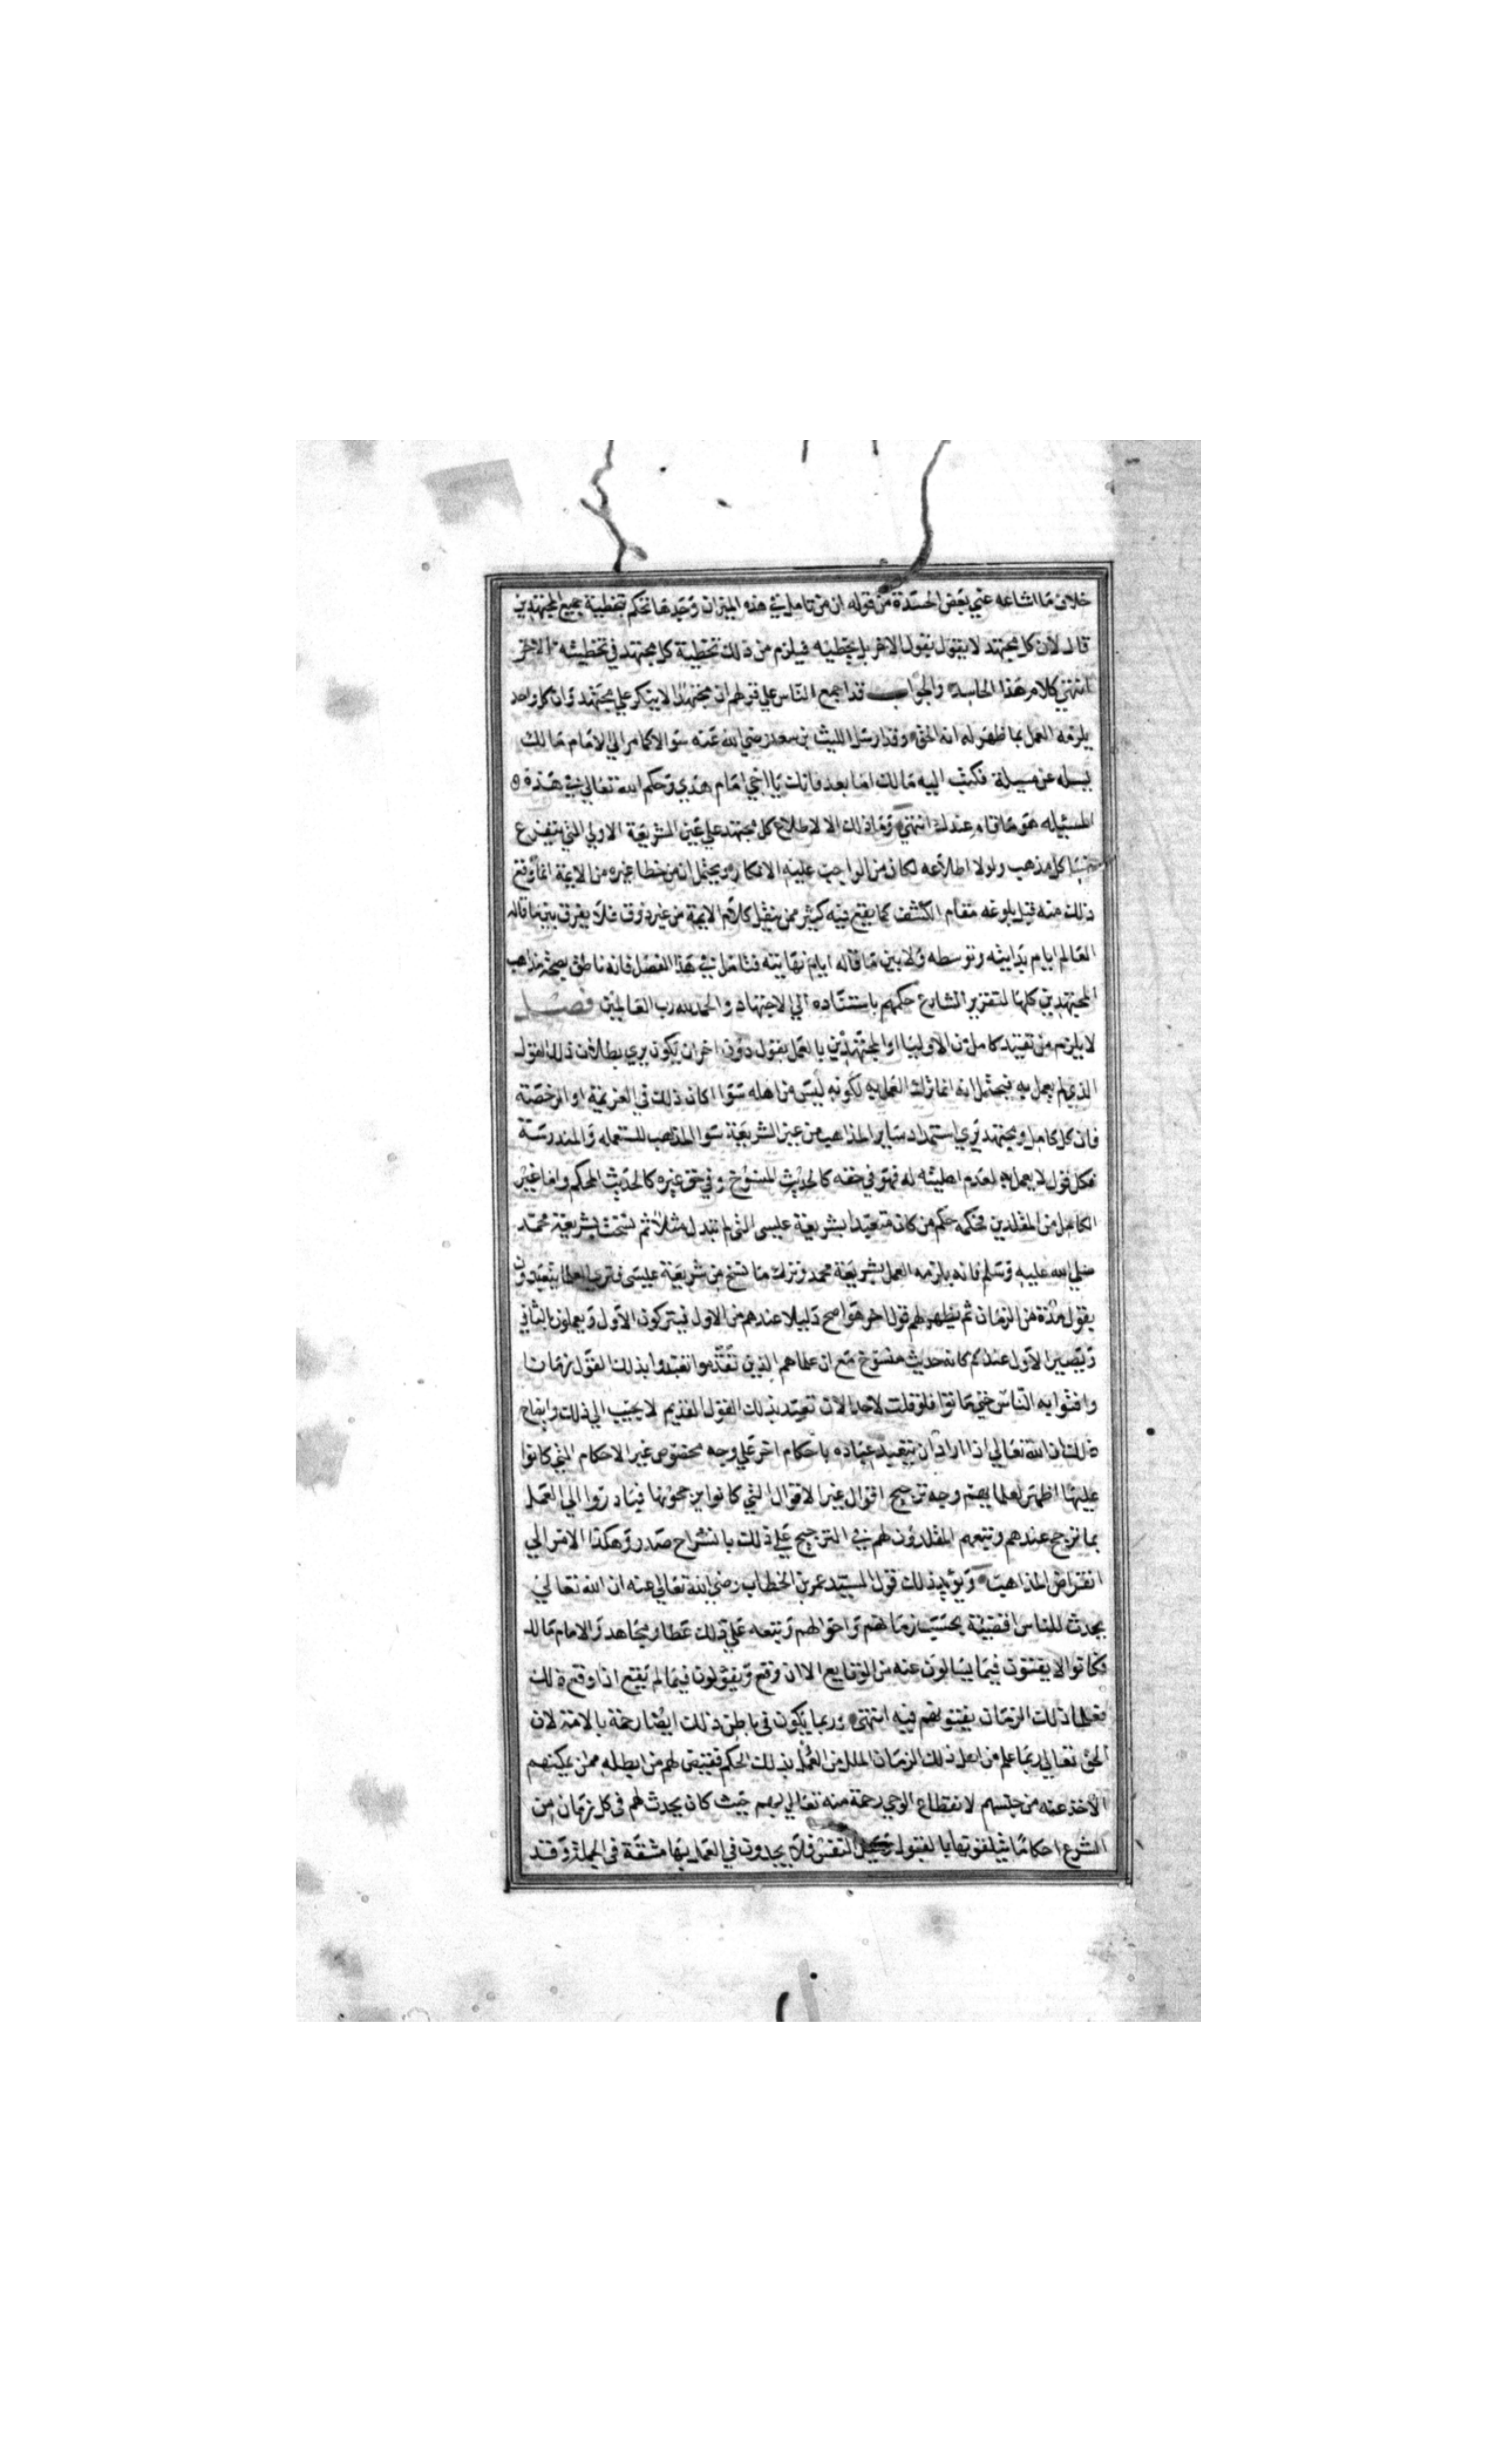 خلاف ما اشاعه عني بعض الحسدة من قوله ان من تامل في هذه الميزان وجدها تحكم بتخطية جميع المجتهدين
قال لان كل مجتهد لا يقول بقول الاخر بل يخطيه فيلزم من ذلك تخطية كل مجتهد في تخطيئه الاخر
انتهي كلام هذا الحاسد والجواب قد اجمع الناس علي قولهم ان مجتهدا لا ينكر علي مجتهد وان كل واحد
يلزمه العمل بما ظهر له انه الحق وقد ارسل الليث بن سعد رضي الله عنه سوالا كما مر الي الامام مالك
يسله عن مسيلة فكتب اليه مالك اما بعد فانك يا اخي امام هدي وحكم الله تعالي في هذه
المسئيله هو ما قام عندك انتهي وما ذلك الا لاطلاع كل مجتهد علي عين الشريعة الاولي التي يتفرع
منها كل مذهب ولولا اطلاعه لكان من الواجب عليه الانكار ويحتمل ان من خطا غيره من الايمة انما وقع
ذلك منه قبل بلوغه مقام الكشف كما يقع فيه كثير ممن ينقل كلام الايمة من غير ذوق فلا يفرق بين ما قاله
العالم ايام بدايته وتوسطه ولا بين ما قاله ايام نهايته فتامل في هذا الفصل فانه ناطق بصحة مذاهب
المجتهدين كلها لتقرير الشارع حكمهم باستناده الي الاجتهاد والحمد لله رب العالمين فصل
لا يلزم من تقيد كامل من الاوليا او المجتهدين بالعمل بقول دون اخر ان يكون يري بطلان ذلك القول
الذي لم يعمل به فيحتمل انه انما ترك العمل به لكونه ليس من اهله سوا اكان ذلك في العزيمة او الرخصة
فان كل كامل ومجتهد يري استمداد ساير المذاهب من عين الشريعة سوا المذاهب المستعمله والمندرسة
فكل قول لا يعمل به لعدم اهليته له فهو في حقه كالحديث المنسوخ وفي حق غيره كالحديث المحكم واما غير
الكامل من المقلدين فحكمه حكم من كان متعبدا بشريعة عيسى التي لم تبدل مثلا ثم نسخت بشريعة محمد
صلي الله عليه وسلم فانه يلزمه العمل بشريعة محمد وترك ما نسخ من شريعة عيسى فتري العلما يتعبدون
بقول مدة من الزمان ثم يظهر لهم قول اخر هو اصح دليلا عندهم من الاول فيتركون الاول ويعملون بالثاني
ويصير الاول عندهم كانه حديث منسوخ مع ان علماهم الذين تقدموا تعبدوا بذلك القول زمانا
وافتوا به الناس حتي ماتوا فلو قلت لاحد الان تعبد بذلك القول القديم لا يجيب الي ذلك وايضاح
ذلك ان الله تعالي اذا اراد ان يتعبد عباده باحكام اخر علي وجه مخصوص غير الاحكام التي كانوا
عليها اظهر لعلمايهم وجه ترجيح اقوال غير الاقوال التي كانوا يرجحونها فبادروا الي العمل
بما ترجح عندهم وتبعهم المقلدون لهم في الترجيح علي ذلك بانشراح صدر وهكذا الامر الي
انقراض المذاهب ويويد ذلك قول السيد عمر بن الخطاب رضي الله تعالي عنه ان الله تعالي
يحدث للناس اقضية بحسب زمانهم واحوالهم وتبعه علي ذلك عطا ومجاهد والامام مالك
فكانوا لا يفتون فيما يسالون عنه من الوقايع الا ان وقع ويقولون فيما لم يقع اذا وقع ذلك
فعلما ذلك الزمان يفتونهم فيه انتهى وربما يكون في باطن ذلك ايضا رحمة بالامة لان
الحق تعالي ربما علم من اهل ذلك الزمان الملل من العمل بذلك الحكم فقيض لهم من ابطله ممن يمكنهم
الاخذ عنه من جنسهم لانقطاع الوحي رحمة منه تعالي بهم حيث كان يحدث لهم في كل زمان من
الشرع احكاما يتلقونها بالقبول النفس فلا يجدون في العمل بها مشقة في الجملة وقد